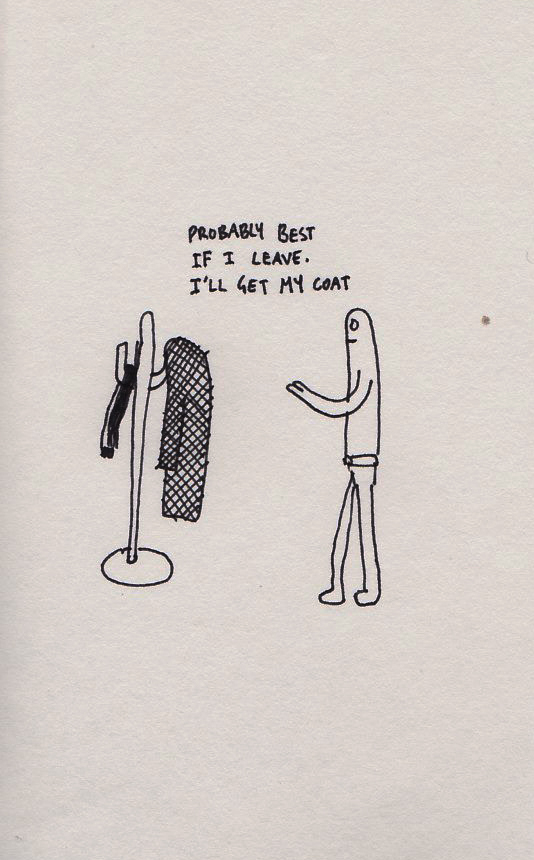 PROBABLY BEST
IF I LEAVE.
I'LL GET MY COAT